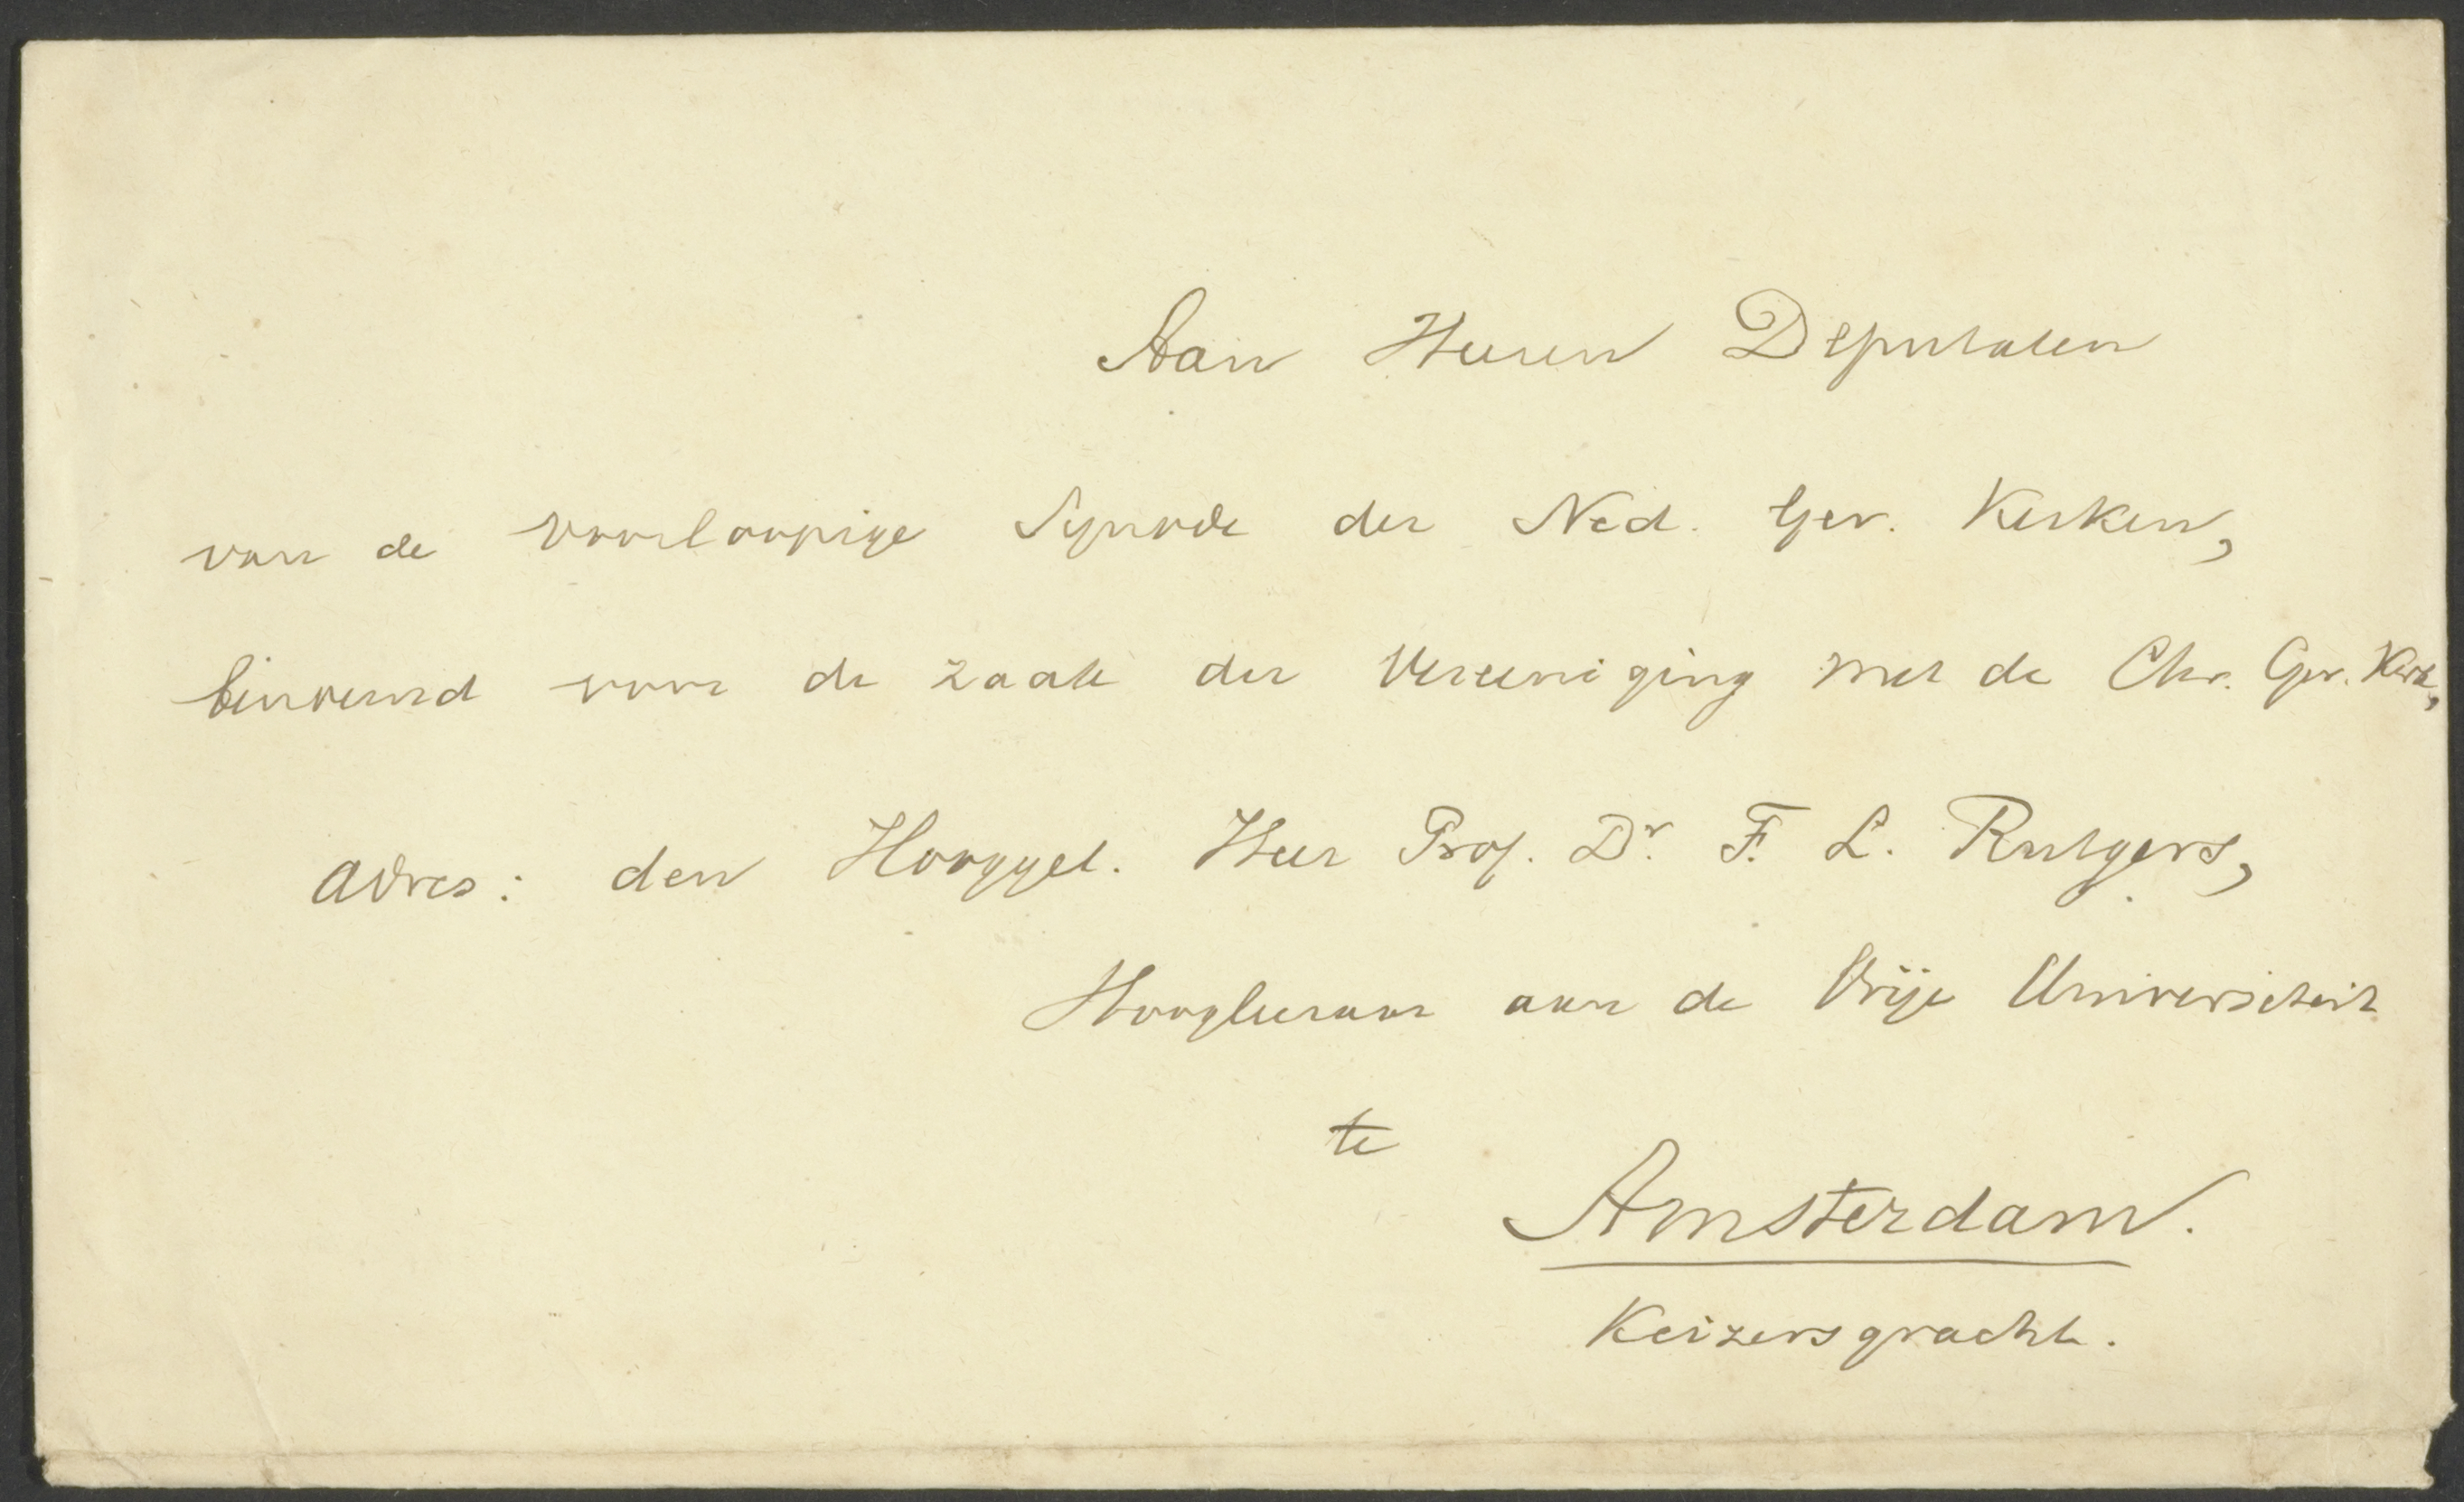 Aan Heeren Deputaten
van de voorloopige Synode der Ned. Ger. Kerken,
benoemd voor de zaak der Vereeniging met de Chr. Ger. Kerk,
adres: den Hooggel. Heer Prof. Dr. F. L. Rutgers,
Hoogleeraar aan de Vrije Universiteit
te
Amsterdam.
Keizersgracht.